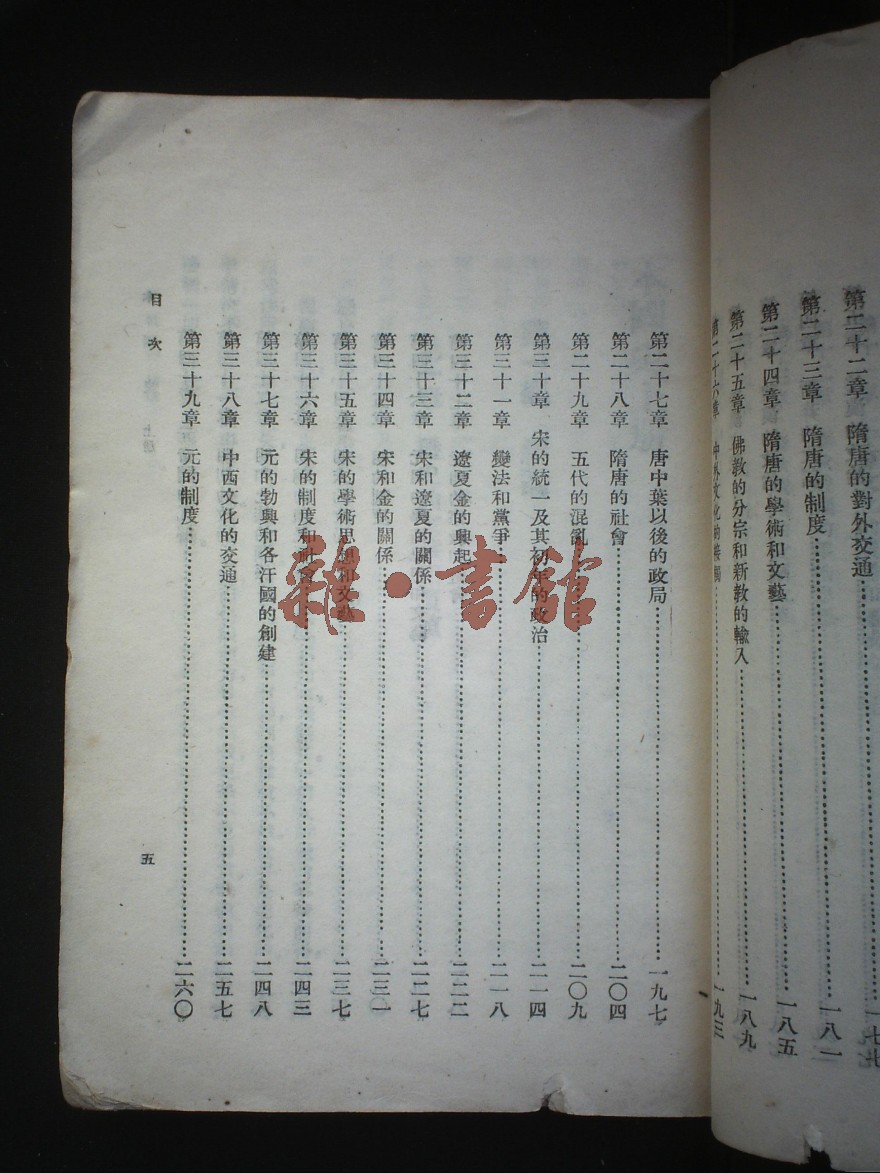 第二十二章 隋唐的對外交通……一七七
第二十三章 隋唐的制度……一八一
第二十四章 隋唐的學術和文藝……一八五
第二十五章 佛教的分宗和新教的輸入……一八九
第二十六章 中外文化的接觸……一九三
第二十七章 唐中葉以後的政局……一九七
第二十八章 隋唐的社會……二〇四
第二十九章 五代的混亂……二〇九
第三十章 宋的統一及其初年的政治……二一四
第三十一章 變法和黨爭……二一八
第三十二章 遼夏金的興起……二二二
第三十三章 宋和遼夏的關係……二二七
第三十四章 宋和金的關係……二三一
第三十五章 宋的學術思想和文藝……二三七
第三十六章 宋的制度和社會……二四三
第三十七章 元的勃興和各汗國的創建……二四八
第三十八章 中西文化的交通……二五七
第三十九章 元的制度……二六〇
目次
五
雜·書館